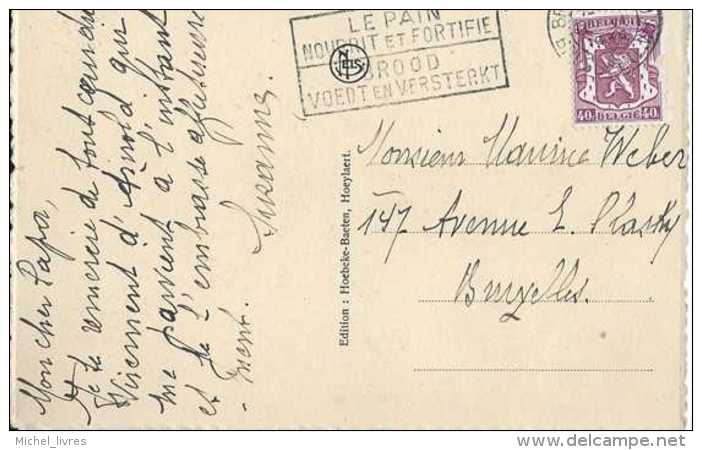 Mon cher Papa,
Je te remercie de tout cœur du
virement d'Arnold qui
me parvient à l'instant
et je t'embrasse affectueuse
- ment.
Suzanne.
LE PAIN
NOURRIT ET FORTIFIE
BROOD
VOEDT EN VERSTERKT
NELS
BELGIQUE
40 BELGIE 40
Edition : Hoebeke-Baeten, Hoeylaert.
Monsieur Maurice Weber
147 Avenue E. Plasky
Bruxelles.
Michel_livres
www.delcampe.net